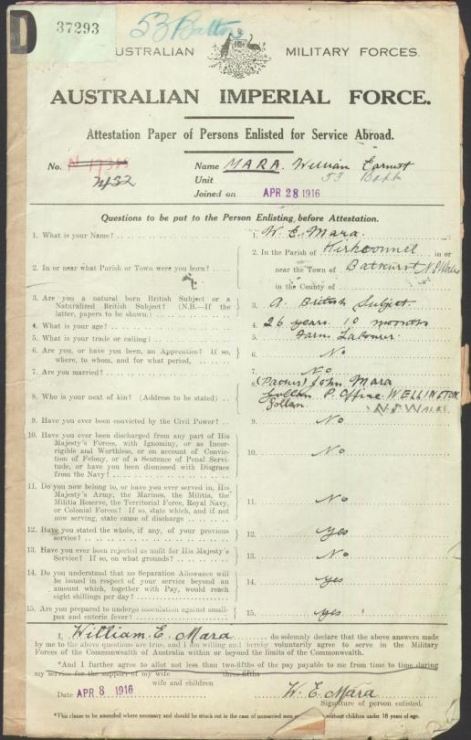 D
37293
53 Battn
AUSTRALIAN MILITARY FORCES.
AUSTRALIAN IMPERIAL FORCE.
Attestation Paper of Persons Enlisted for Service Abroad.
No. Name MARA. William Earnest
Unit 53 Battn
Joined on APR 28 1916
Questions to be put to the Person Enlisting before Attestation.
1. What is your Name? 1. W. E. Mara.
2. In or near what Parish or Town were you born? 2. In the Parish of Kirkconnel in or
near the Town of Bathurst N.S.Wales
in the County of
3. Are you a natural born British Subject or a
Naturalized British Subject? (N.B.—If the
latter, papers to be shown.) 3. A. British Subject.
4. What is your age? 4. 26 years 10 months
5. What is your trade or calling? 5. Farm Labourer
6. Are you, or have you been, an Apprentice? If so,
where, to whom, and for what period. 6. No
7. Are you married? 7. No
8. Who is your next of kin? (Address to be stated) 8. (Father) John Mara
P. Office WELLINGTON
Gollan N.S. WALES.
9. Have you ever been convicted by the Civil Power? 9. No
10. Have you ever been discharged from any part of His
Majesty's Forces, with Ignominy, or as Incor-
rigible and Worthless, or on account of Convic-
tion of Felony, or of a Sentence of Penal Servi-
tude, or have you been dismissed with Disgrace
from the Navy? 10. No
11. Do you now belong to, or have you ever served in, His
Majesty's Army, the Marines, the Militia, the
Militia Reserve, the Territorial Force, Royal Navy,
or Colonial Forces? If so, state which, and if not
now serving, state cause of discharge 11. No
12. Have you stated the whole, if any, of your previous
service? 12. Yes
13. Have you ever been rejected as unfit for His Majesty's
Service? If so, on what grounds? 13. No
14. Do you understand that no Separation Allowance will
be issued in respect of your service beyond an
amount which, together with Pay, would reach
eight shillings per day? 14. Yes
15. Are you prepared to undergo inoculation against small-
pox and enteric fever? 15. Yes
I, William. E. Mara do solemnly declare that the above answers made
by me to the above questions are true, and I am willing and hereby voluntarily agree to serve in the Military
Forces of the Commonwealth of Australia within or beyond the limits of the Commonwealth.
*And I further agree to allot not less than two-fifths of the pay payable to me from time to time during
my service for the support of my wife three-fifths
wife and children
Date APR 8 1916 W. E. Mara
Signature of person enlisted.
*This clause to be amended where necessary and should be struck out in the case of unmarried men or without children under 18 years of age.